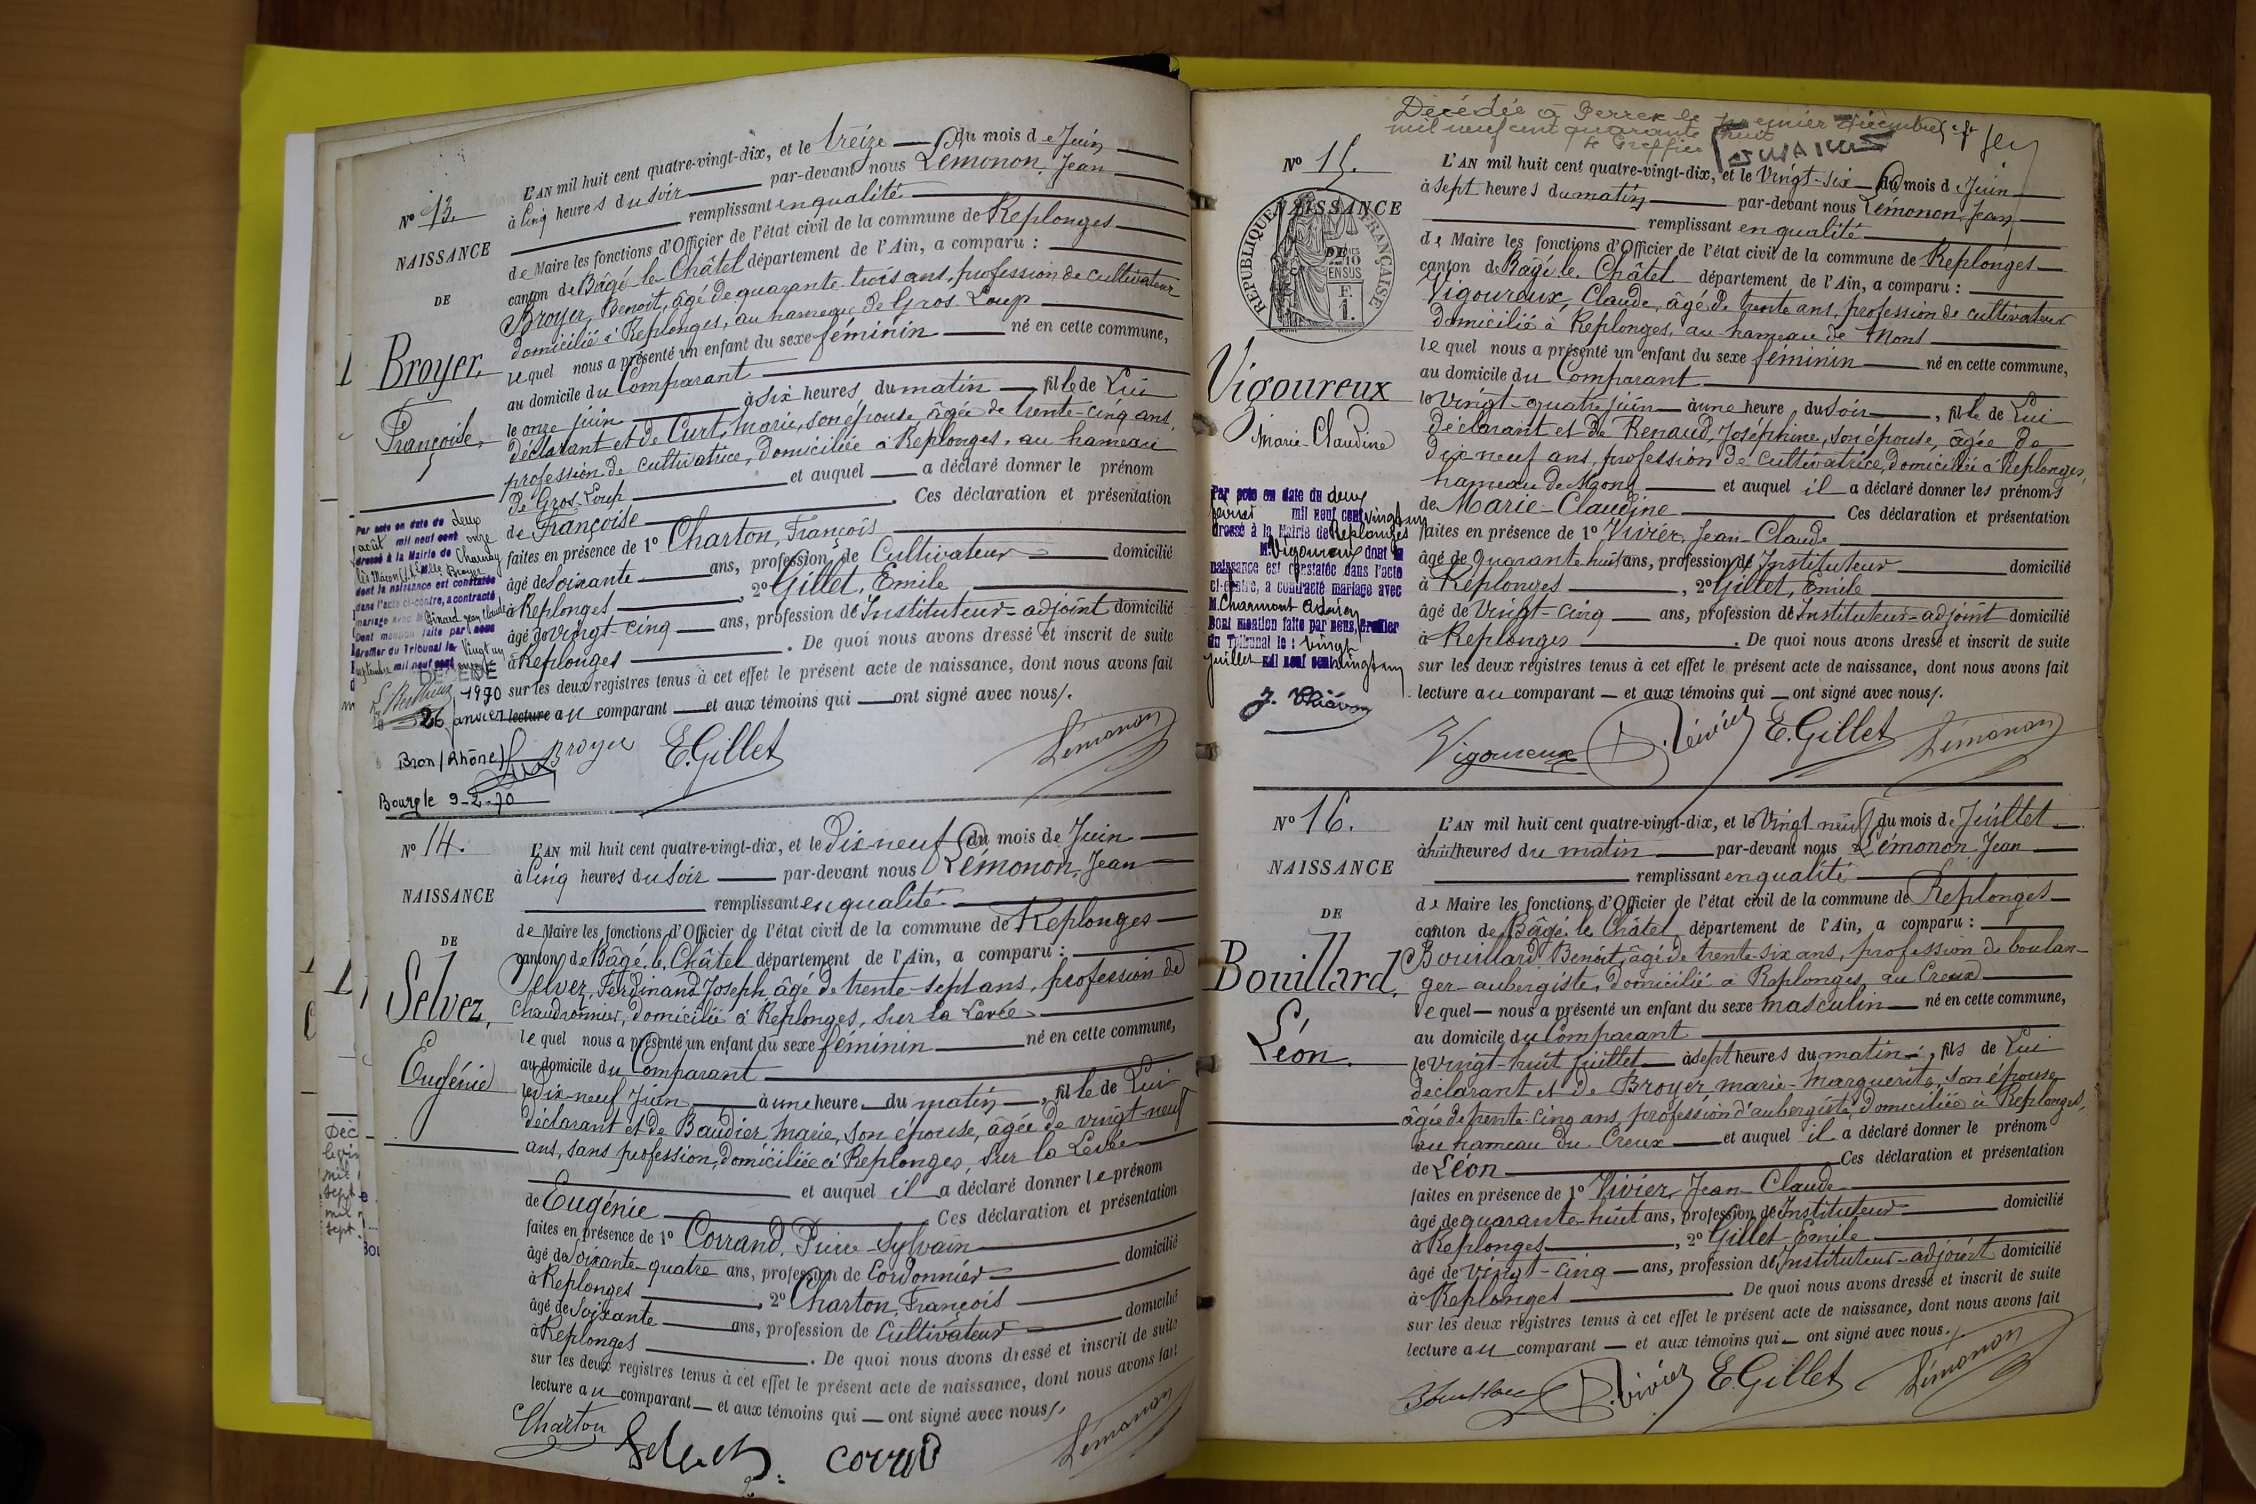 L'AN mil huit cent quatre-vingt-dix, et le treize du mois de Juin
N° 13.
à Cinq heures du soir par-devant nous Lémonon, Jean
remplissant en qualité
NAISSANCE
de Maire les fonctions d'Officier de l'état civil de la commune de Replonges
DE
canton de Bâgé-le-Châtel département de l'Ain, a comparu :
Broyer, Benoit, âgé de quarante-trois ans, profession de cultivateur
domicilié à Replonges, au hameau de Gros Loup
Broyer,
Françoise,
lequel nous a présenté un enfant du sexe féminin né en cette commune,
au domicile du Comparant
le onze juin à six heures du matin, fille de Lui
déclarant et de Curt, Marie, son épouse, âgée de trente-cinq ans,
profession de cultivatrice, domiciliée à Replonges, au hameau
De Gros-Loup et auquel a déclaré donner le prénom
de Françoise. Ces déclaration et présentation
faites en présence de 1° Charton, François
âgé de soixante ans, profession de Cultivateur domicilié
à Replonges, 2° Gillet, Emile
âgé de vingt-cinq ans, profession de Instituteur-adjoint domicilié
à Replonges. De quoi nous avons dressé et inscrit de suite
sur les deux registres tenus à cet effet le présent acte de naissance, dont nous avons fait
lecture au comparant et aux témoins qui ont signé avec nous.
Par acte en date du deux
août mil neuf cent onze
dressé à la Mairie de Charnay
lès Mâcon (S.L.) Melle Broyer
dont la naissance est constatée
dans l'acte ci-contre, a contracté
mariage avec M. Jean Claude
Dont mention faite par nous
Greffier du Tribunal le vingt un
septembre mil neuf cent onze
1970
26 janvier
Bron (Rhône)
Bourg le 9-2-70
Broyer E. Gillet Lémonon
N° 14.
L'AN mil huit cent quatre-vingt-dix, et le Dix-neuf du mois de Juin
à Cinq heures du Soir par-devant nous Lémonon, Jean
NAISSANCE
remplissant en qualité
de Maire les fonctions d'Officier de l'état civil de la commune de Replonges
DE
canton de Bâgé-le-Châtel département de l'Ain, a comparu :
Selvez, Ferdinand Joseph, âgé de trente-sept ans, profession de
Chaudronnier, domicilié à Replonges, sur la Levée
Selvez,
Eugénie
lequel nous a présenté un enfant du sexe féminin né en cette commune,
au domicile du Comparant
le Dix-neuf Juin à une heure du matin, fille de Lui
déclarant et de Baudier, Marie, son épouse, âgée de vingt-neuf
ans, sans profession, domiciliée à Replonges, sur la Levée
et auquel il a déclaré donner le prénom
de Eugénie Ces déclaration et présentation
faites en présence de 1° Corrand, Pierre-Sylvain
âgé de soixante-quatre ans, profession de Cordonnier domicilié
à Replonges, 2° Charton, François
âgé de Soixante ans, profession de Cultivateur domicilié
à Replonges. De quoi nous avons dressé et inscrit de suite
sur les deux registres tenus à cet effet le présent acte de naissance, dont nous avons fait
lecture au comparant et aux témoins qui ont signé avec nous.
Charton Lémonon
Décédée à Perrex le premier décembre
mil neuf cent quarante huit
le Greffier
N° 15.
L'AN mil huit cent quatre-vingt-dix, et le Vingt-six du mois de Juin
à sept heures du matin par-devant nous Lémonon, Jean
NAISSANCE
RÉPUBLIQUE FRANÇAISE
DE
remplissant en qualité
de Maire les fonctions d'Officier de l'état civil de la commune de Replonges
canton de Bâgé-le-Châtel département de l'Ain, a comparu :
Vigoureux, Claude, âgé de trente ans, profession de cultivateur
domicilié à Replonges, au hameau de Mons
lequel nous a présenté un enfant du sexe féminin né en cette commune,
Vigoureux
Marie-Claudine
au domicile du Comparant
le vingt-quatre juin à une heure du soir, fille de Lui
déclarant et de Renaud, Joséphine, son épouse, âgée de
dix-neuf ans, profession de cultivatrice, domiciliée à Replonges,
hameau de Mons et auquel il a déclaré donner les prénoms
de Marie-Claudine Ces déclaration et présentation
faites en présence de 1° Vivier, Jean-Claude
âgé de quarante-huit ans, profession de Instituteur domicilié
à Replonges, 2° Gillet, Emile
âgé de vingt-cinq ans, profession de Instituteur-adjoint domicilié
à Replonges. De quoi nous avons dressé et inscrit de suite
sur les deux registres tenus à cet effet le présent acte de naissance, dont nous avons fait
lecture au comparant et aux témoins qui ont signé avec nous.
Par acte en date du deux
février mil neuf cent vingt un
dressé à la Mairie de Replonges
M. Vigoureux dont la
naissance est constatée dans l'acte
ci-contre, a contracté mariage avec
M. Charmont Adrien
Dont mention faite par nous, Greffier
du Tribunal le : vingt
juillet mil neuf cent vingt un
Vigoureux Vivier E. Gillet Lémonon
N° 16.
L'AN mil huit cent quatre-vingt-dix, et le Vingt neuf du mois de Juillet
à huit heures du matin par-devant nous Lémonon, Jean
NAISSANCE
remplissant en qualité
de Maire les fonctions d'Officier de l'état civil de la commune de Replonges
DE
canton de Bâgé-le-Châtel département de l'Ain, a comparu :
Bouillard, Benoit, âgé de trente-six ans, profession de boulan-
ger-aubergiste, domicilié à Replonges, au Creux
Bouillard,
Léon.
lequel nous a présenté un enfant du sexe masculin né en cette commune,
au domicile du Comparant
le vingt-huit juillet à sept heures du matin, fils de Lui
déclarant et de Broyer, Marie-Marguerite, son épouse
âgée de trente-cinq ans, profession d'aubergiste, domiciliée à Replonges,
au hameau du Creux et auquel il a déclaré donner le prénom
de Léon Ces déclaration et présentation
faites en présence de 1° Vivier, Jean-Claude
âgé de quarante-huit ans, profession de Instituteur domicilié
à Replonges, 2° Gillet, Emile
âgé de vingt-cinq ans, profession de Instituteur-adjoint domicilié
à Replonges. De quoi nous avons dressé et inscrit de suite
sur les deux registres tenus à cet effet le présent acte de naissance, dont nous avons fait
lecture au comparant et aux témoins qui ont signé avec nous.
Vivier E. Gillet Lémonon